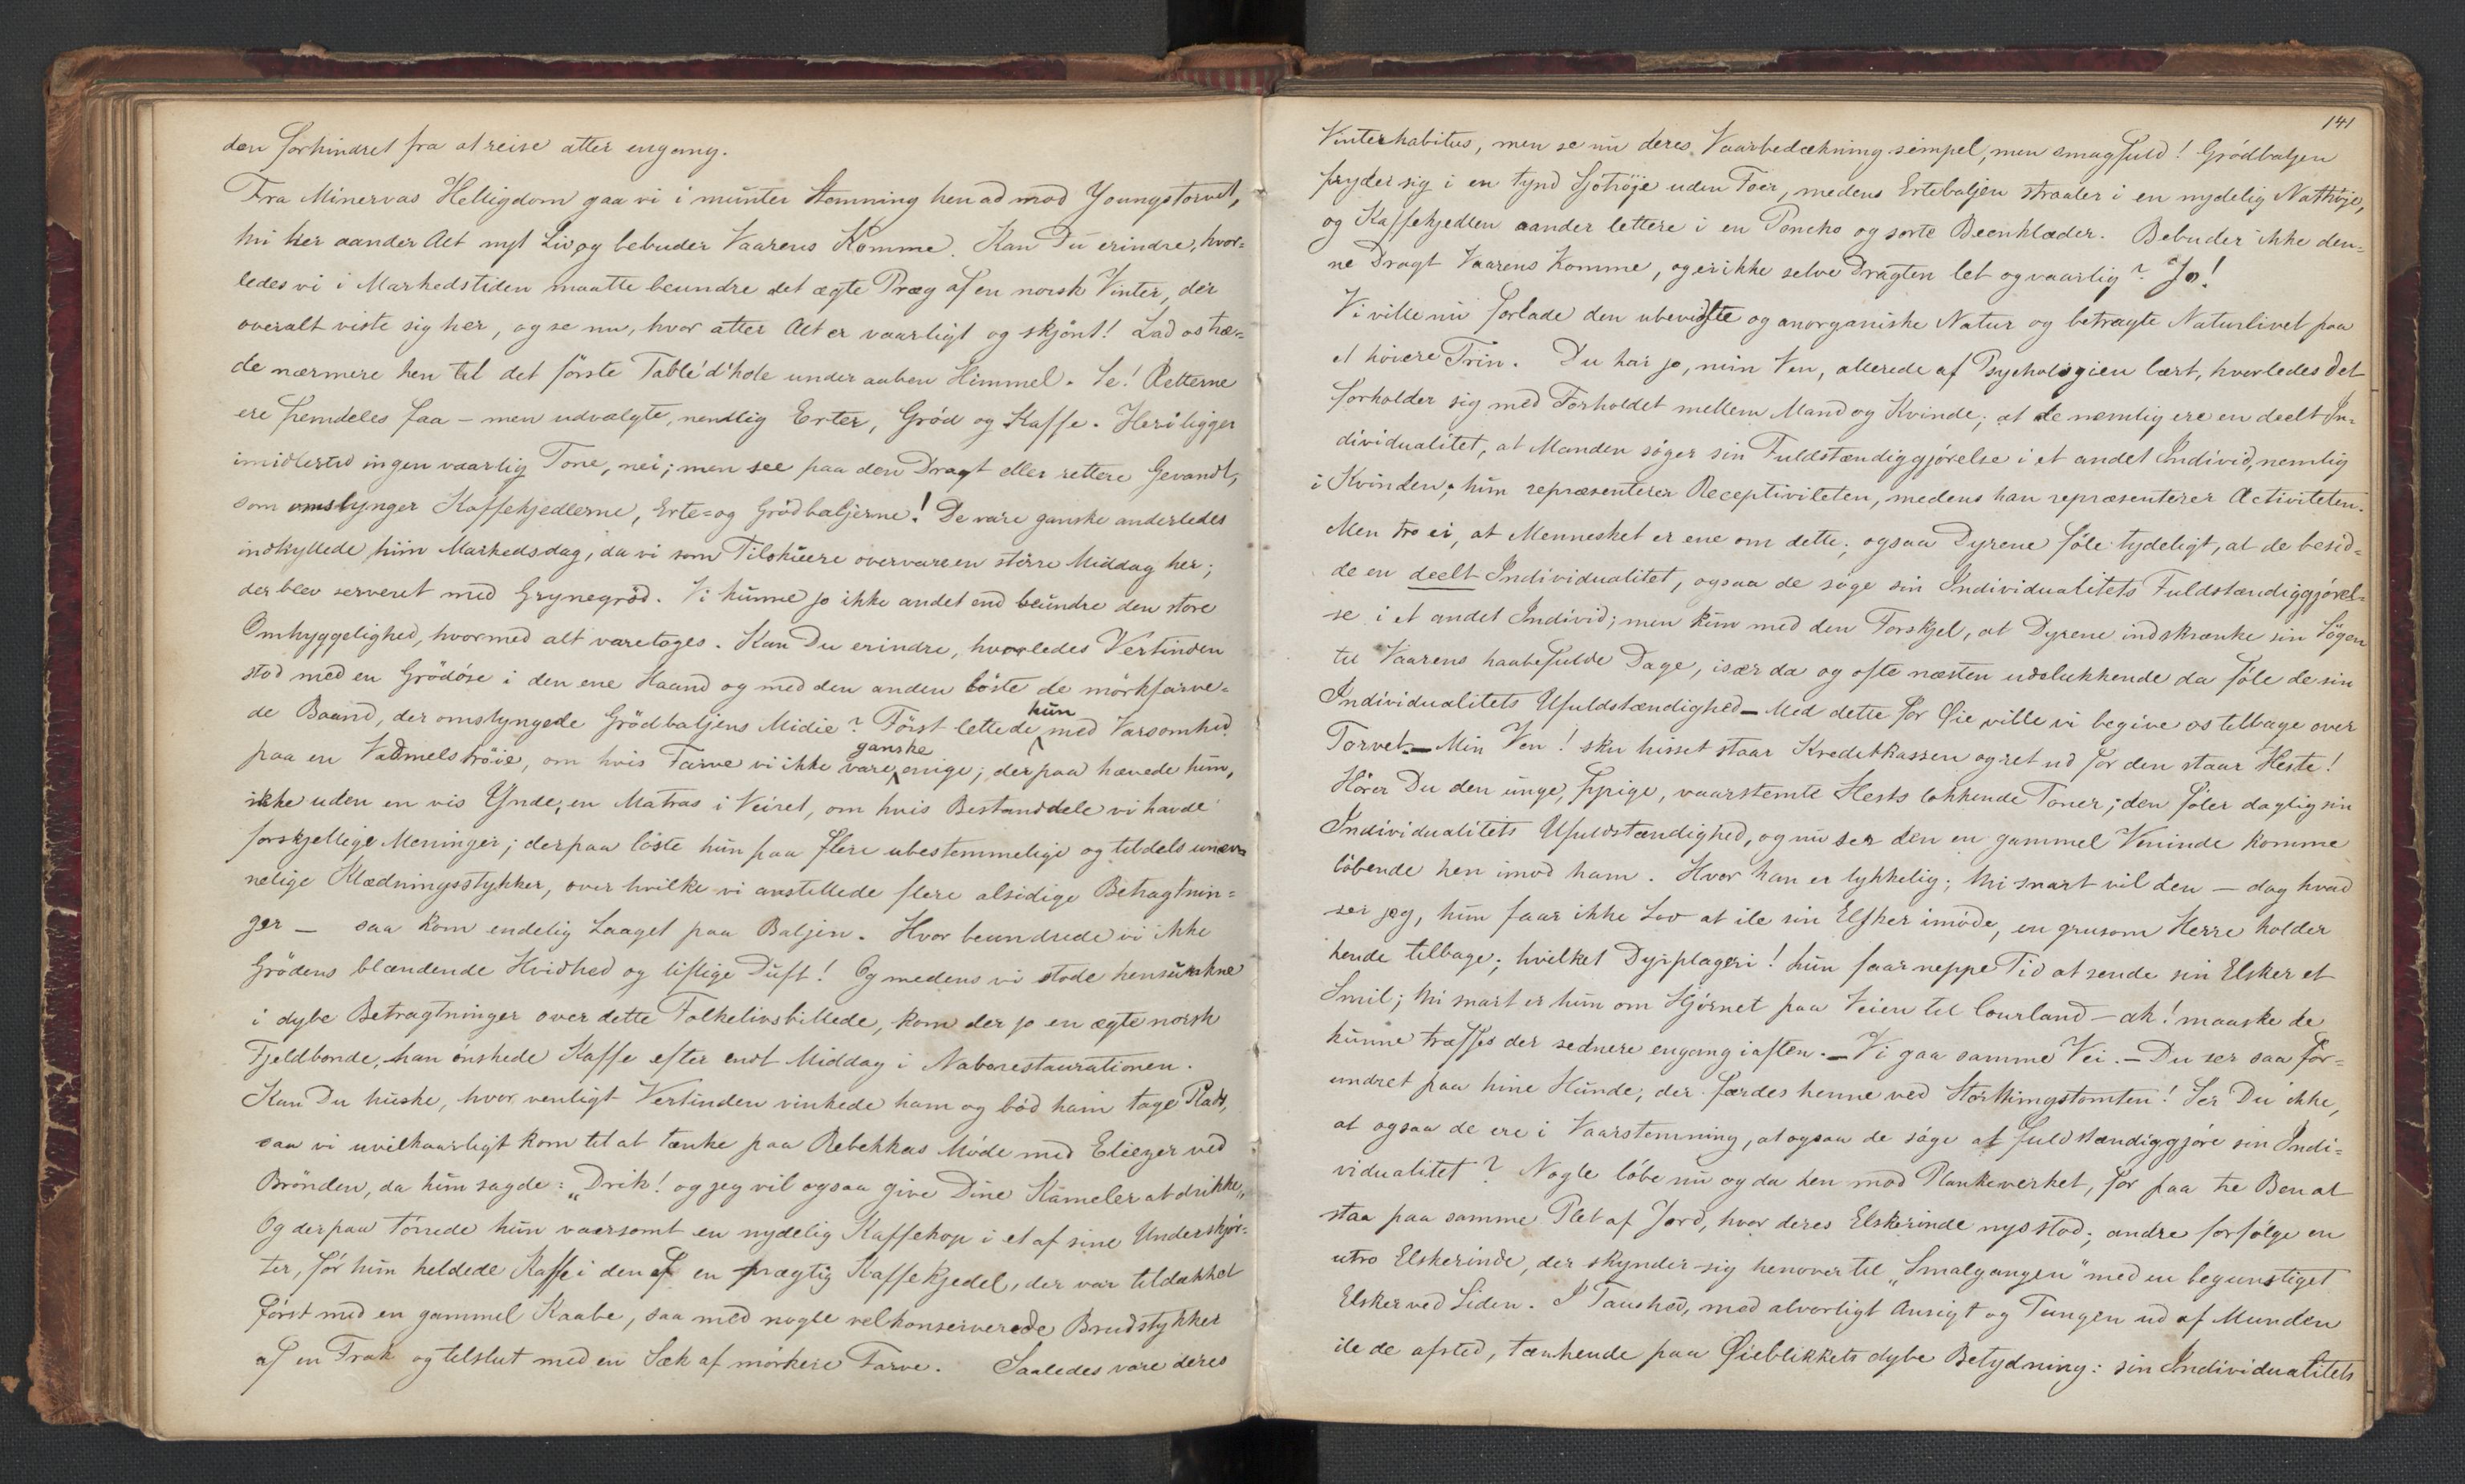 den forhindret fra at reise atter engang.
Fra Minervas Helligdom gaa vi i munter Stemning hen ad mod Youngstorvet,
thi her aander Alt nyt Liv og bebuder Vaarens Komme. Kan Du erindre, hvor-
ledes vi i Markedstiden maatte beundre det ægte Præg af en norsk Vinter, der
overalt viste sig her, og se nu, hvor atter Alt er vaarligt og skjønt! Lad os træ-
de nærmere hen til det første Table'd'hôte under aaben Himmel. Se! Retterne
ere fremdeles faa - men udvalgte, nemlig Erter, Grød og Kaffe. Heri ligger
imidlertid ingen vaarlig Tone, nei; men see paa den Dragt eller rettere Gevandt,
som omslynger Kaffekjedlerne, Erte- og Grødbaljerne! De vare ganske anderledes
indhyllede hiin Markedsdag, da vi som Tilskuere overvare en større Middag her;
der blev serveret med Grynegrød. Vi kunne jo ikke andet end beundre den store
Omhyggelighed, hvormed alt varetoges. Kan Du erindre, hvorledes Vertinden
stod med en Grødøse i den ene Haand og med den anden løste de mørkfarve-
de Baand, der omslyngede Grødbaljens Midie? Først lettede hun med Varsomhed
paa en Vadmelstrøie, om hvis Farve vi ikke vare ganske enige; derpaa hævede hun,
ikke uden en vis Ynde, en Matras i Veiret, om hvis Bestanddele vi havde
forskjellige Meninger; derpaa løste hun paa flere ubestemmelige og tildels unæv-
nelige Klædningsstykker, over hvilke vi anstillede flere alsidige Betragtnin-
ger — saa kom endelig Laaget paa Baljen. Hvor beundrede vi ikke
Grødens blændende Hvidhed og liflige Duft! Og medens vi stode hensunkne
i dybe Betragtninger over dette Folkelivsbillede, kom der jo en ægte norsk
Fjeldbonde, han ønskede Kaffe efter endt Middag i Naborestaurationen.
Kan Du huske, hvor venligt Vertinden vinkede ham og bød ham tage Plads,
saa vi uvilkaarligt kom til at tænke paa Rebekkas Møde med Eliezer ved
Brønden, da hun sagde: „Drik! og jeg vil ogsaa give Dine Kameler at drikke„
Og derpaa tørrede hun vaersomt en nydelig Kaffekop i et af sine Underskjør-
ter, før hun heldede Kaffe i den af en prægtig Kaffekjedel, der var tildækket
først med en gammel Kaabe, saa med nogle velkonserverede Brudstykker
af en Frak og tilslut med en Sæk af mørkere Farve. Saaledes vare deres
141
Vinterhabitus, men se nu deres Vaarbedækning simpel, men smagfuld! Grødbaljen
fryder sig i en tynd Sjøtrøje uden Foer, medens Ertebaljen straaler i en nydelig Nattrøje,
og Kaffekjedlen aander lettere i en Poncho og sorte Beenklæder. Bebuder ikke den-
ne Dragt Vaarens Komme, og er ikke selve Dragten let og vaarlig? Jo!
Vi ville nu forlade den ubevidste og anorganiske Natur og betragte Naturlivet paa
et høiere Trin. Du har jo, min Ven, allerede af Psychologien lært, hvorledes det
forholder sig med Forholdet mellem Mand og Kvinde; at de nemlig ere en deelt In-
dividualitet, at Manden søger sin Fuldstændiggjørelse i et andet Individ, nemlig
i Kvinden; hun repræsenterer Receptiviteten, medens han repræsenterer Activiteten.
Men tro ei, at Mennesket er ene om dette; ogsaa Dyrene føle tydeligt, at de besid-
de en deelt Individualitet, ogsaa de søge sin Individualitets Fuldstændiggjørel-
se i et andet Individ; men kun med den Forskjel, at Dyrene indskrænke sin Søgen
til Vaarens haabefulde Dage, især da og ofte næsten udelukkende da føle de sin
Individualitets Ufuldstændighed — Med dette for Øie ville vi begive os tilbage over
Torvet. — Min Ven! sku hisset staar Kreditkassen og ret ud for den staar Heste!
Hører Du den unge, fyrige, vaarstemte Hests lokkende Toner; den føler daglig sin
Individualitets Ufuldstændighed, og nu ser den en gammel Veninde komme
løbende hen imod ham. Hvor han er lykkelig; thi snart vil den — dog hvad
ser jeg, hun faar ikke Lov at ile sin Elsker imøde, en grusom Herre holder
hende tilbage; hvilket Dyrplageri! hun faar neppe Tid at sende sin Elsker et
Smil; thi snart er hun om Hjørnet paa Veien til Courland — ak! maaske de
kunne træffes der sednere engang iaften. — Vi gaa samme Vei. — Du ser saa for-
undret paa hine Hunde, der færdes henne ved Storthingstomten! Ser Du ikke,
at ogsaa de ere i Vaarstemning, at ogsaa de søge at fuldstændiggjøre sin Indi-
vidualitet? Nogle løbe nu og da hen mod Plankeverket, for paa tre Ben at
staa paa samme Plet af Jord, hvor deres Elskerinde nys stod; andre forfølge en
utro Elskerinde, der skynder sig henover til „Smalgangen" med en begunstiget
Elsker ved Siden. I Taushed, med alvorligt Ansigt og Tungen ud af Munden
ile de afsted, tænkende paa Øieblikkets dybe Betydning: sin Individualitets